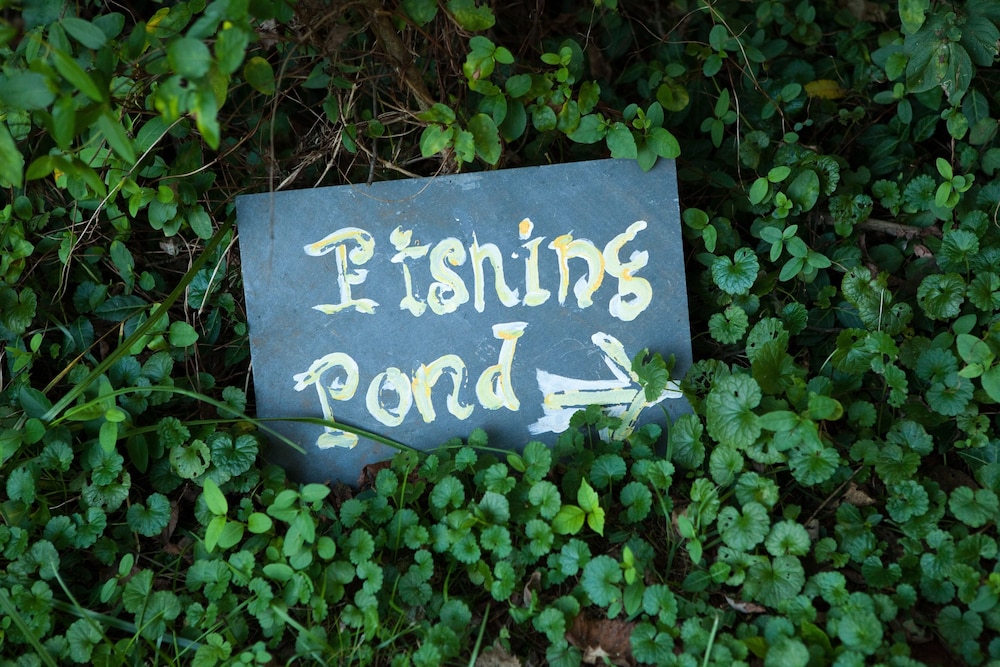 Fishing
Pond →